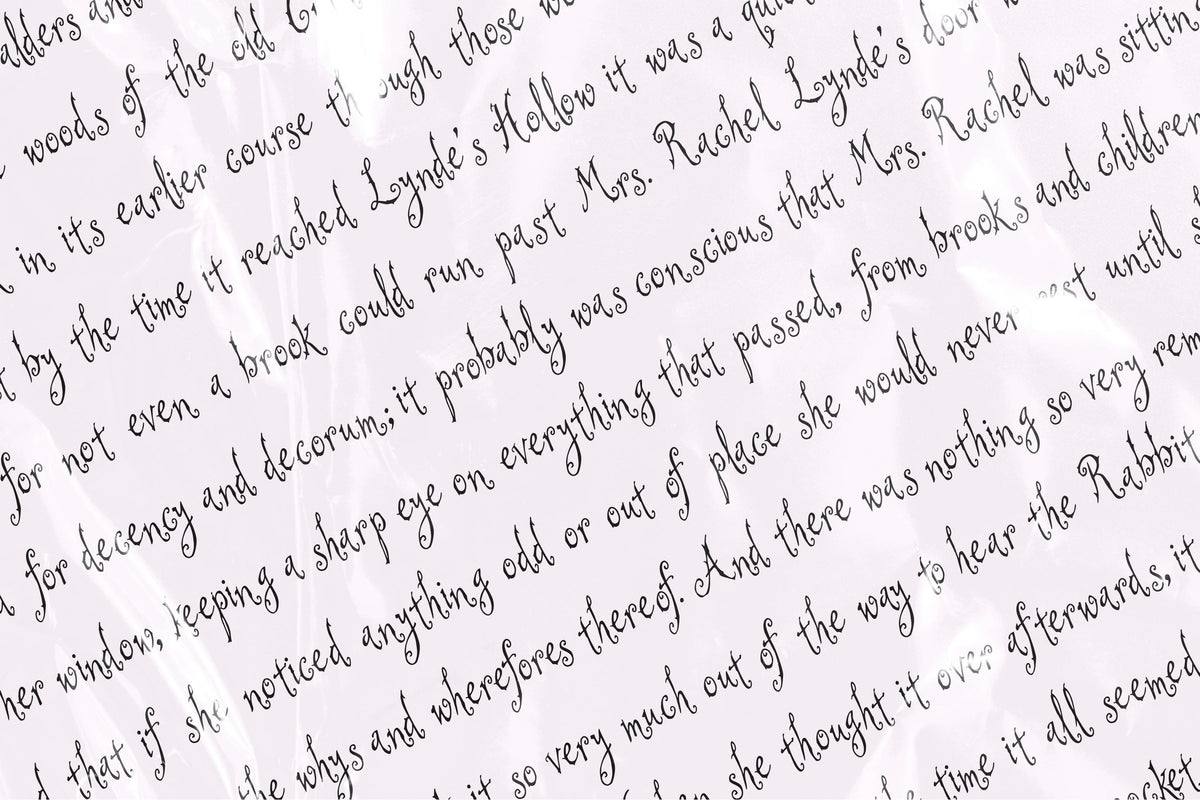 alders and
woods of the old
in its earlier course through those
by the time it reached Lynde's Hollow it was a
for not even a brook could run past Mrs. Rachel Lynde's door
for decency and decorum; it probably was conscious that Mrs. Rachel was sitting
her window, keeping a sharp eye on everything that passed, from brooks and children
that if she noticed anything odd or out of place she would never rest until
the whys and wherefores thereof. And there was nothing so very
it so very much out of the way to hear the Rabbit
she thought it over afterwards, it
time it all seemed